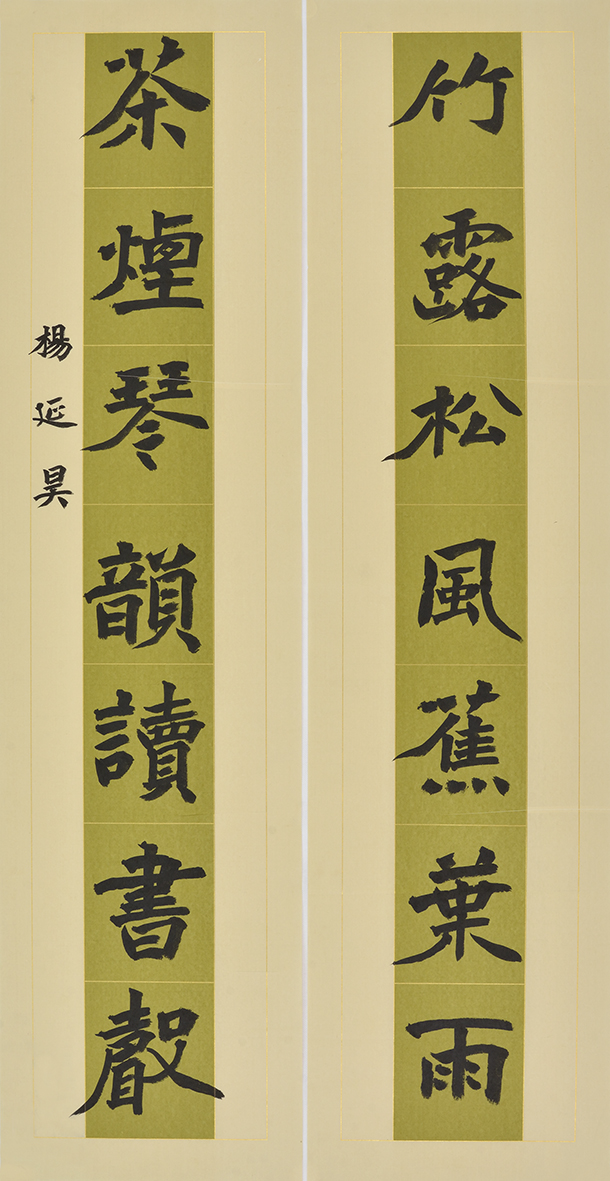 竹露松風蕉葉雨
茶煙琴韻讀書聲
楊延昊